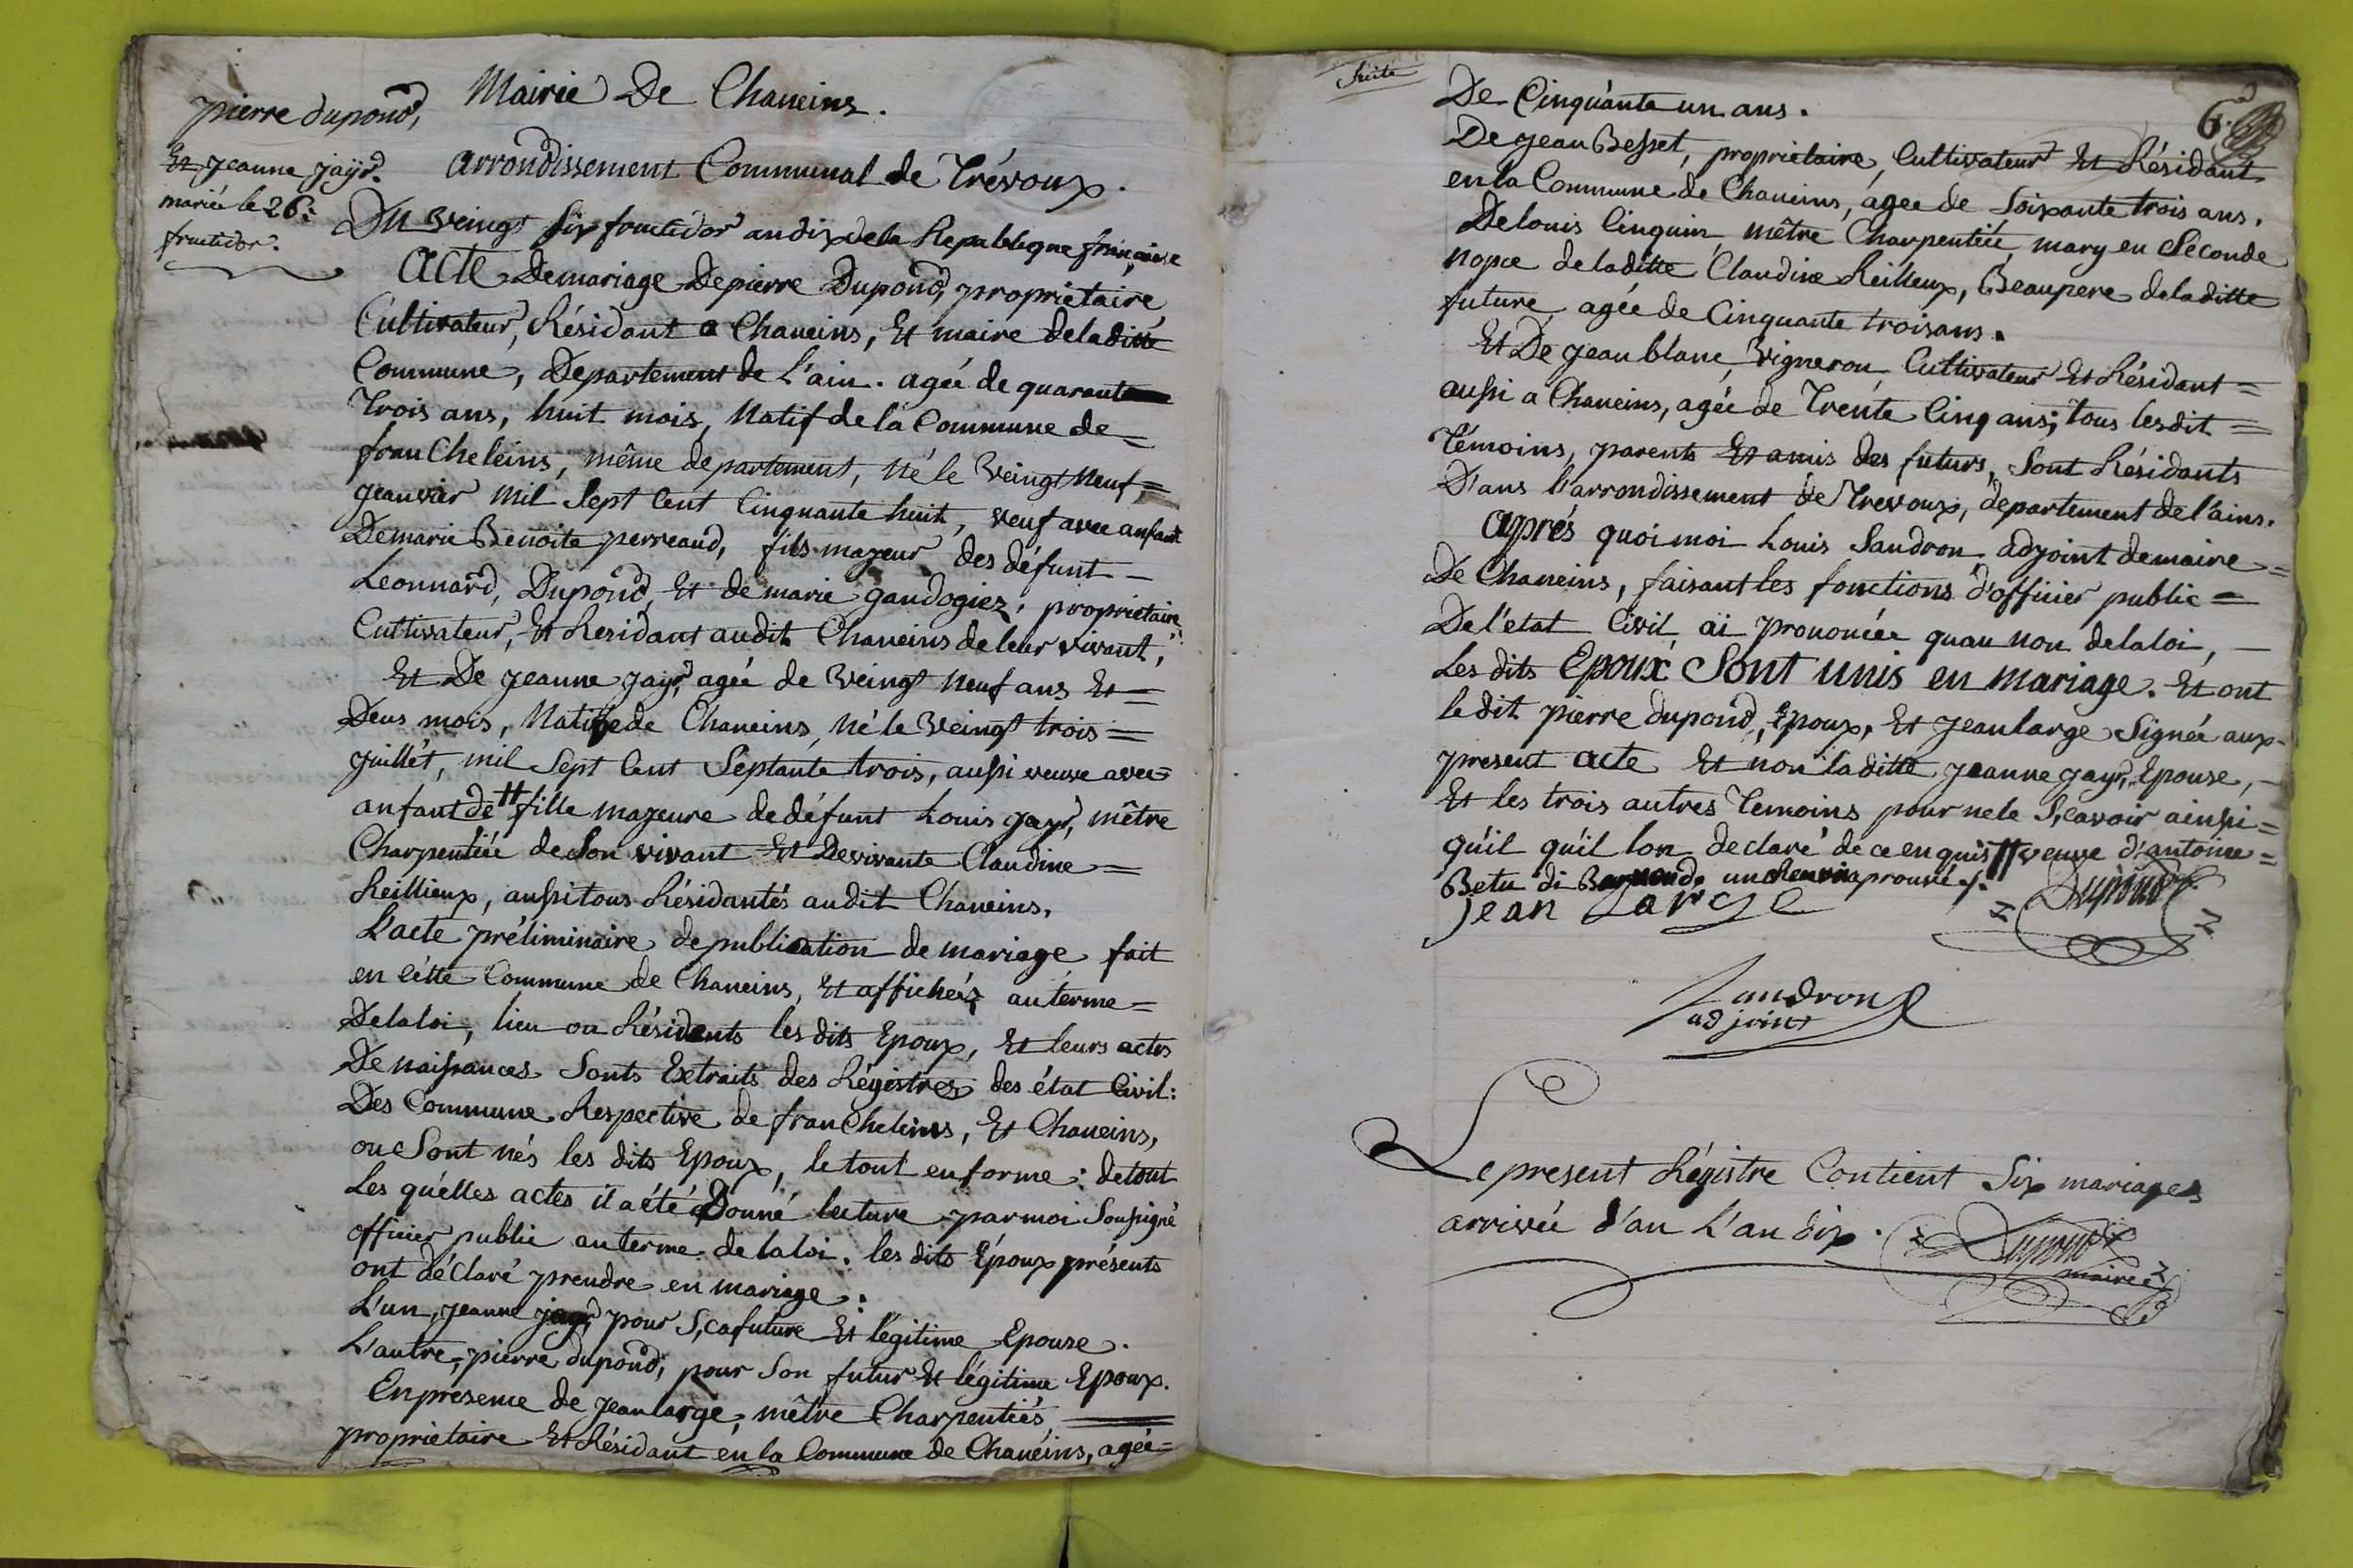 pierre dupond,
Et jeanne jayr.
mariée le 26:
fructidor.
Mairie De Chaneins.
arrondissement Communal de Trévoux.
Du veingt Six fructidor an dix de la Republeque française
Acte De mariage De pierre Dupond, propriétaire,
Cultivateur, Résidant a Chaneins, Et maire de laditte
Commune, Departement de L'ain. agée de quarante
Trois ans, huit mois, Natif de la Commune de =
fran Cheleins, même departement, Né le Veingt neuf, =
jeanvier mil Sept Cent Cinquante huit, veuf avec anfant
De marie Benoite perreaud, fils mageur des défunt -
Leonnard, Dupond, Et de marie gandogiez, propriétaire,
Cultivateur, Et Residant audit Chaneins de leur vivant,
Et De jeanne jayr, agée de Veingt Neuf ans Et =
Deus mois, Native de Chaneins, Né le Veingt trois =
juillét, mil Sept Cent Septante trois, aussi veuve avec =
anfant de # fille mageure de défunt Louis jayr, mêtre
Charpentiée de Son vivant Et De vivante Claudine =
Reillieux, aussi tous Résidantés audit Chaneins,
L'acte préliminaire de publication de mariage fait
en cétte Commune de Chaneins, Et affichéz au terme =
De la loi, lieu ou Résidents les dits Epoux, Et leurs actes
De naissances Sonts Extraits des Régistres des état Civil:
Des Commune Respective de fran Cheleins, Et Chaneins,
ou Sont nés les dits Epoux, le tout en forme: de tout
Les quélles actes il a été Donné lecture par moi Soussigné
officier public au terme de la loi. les dits Epoux présents
ont déclaré prendre en mariage.
L'un, jeanne jayr, pour S,ca future Et légitime Epouse.
L'autre, pierre dupond, pour Son futur Et légitime Epoux.
En presense de jean large, mêtre Charpentiés,
propriétaire Et Résidant en la Commune de Chanéins, agée =
Suite
6.
De Cinquante un ans.
De jean Besset, propriétaire, Cultivateur Et Résidant
en la Commune de Chaneins, agee de Soixante trois ans.
De louis Cinquin, mêtre Charpentiée, mary en Seconde
nopce de laditte Claudine Reilleux, Beaupere de laditte
future, agée de Cinquante trois ans.
Et De jean blanc, Vigneron, Cultivateur Et Résidant =
aussi a Chaneins, agée de Trente Cinq ans; tous les dit =
Témoins, parents Et amis des futurs, Sont Résidants
D'ans l'arrondissement de Trevoux, departement de l'ains.
Aprés quoi moi Louis Sandron, adjoint de maire =
De Chaneins, faisant les fonctions d'officier public =
De l'état Civil, ai prononcée quau non de la loi, -
Les dits Epoux Sont unis en mariage. Et ont
le dit pierre dupond, Epoux, Et jean large Signée aux -
present acte Et non laditte jeanne jayr, Epouse, -
Et les trois autres Temoins pour ne le S,cavoir ainsi =
qu'il qu'il lon declaré de ce enquis # veuve d'antoine =
Betu di un Renvoi aprouvé ./.
jean Large
Dupond
Sandron
adjoint
Le present Régistre Contient Six mariages
arrivée d'an L'an dix.
Dupond
maire